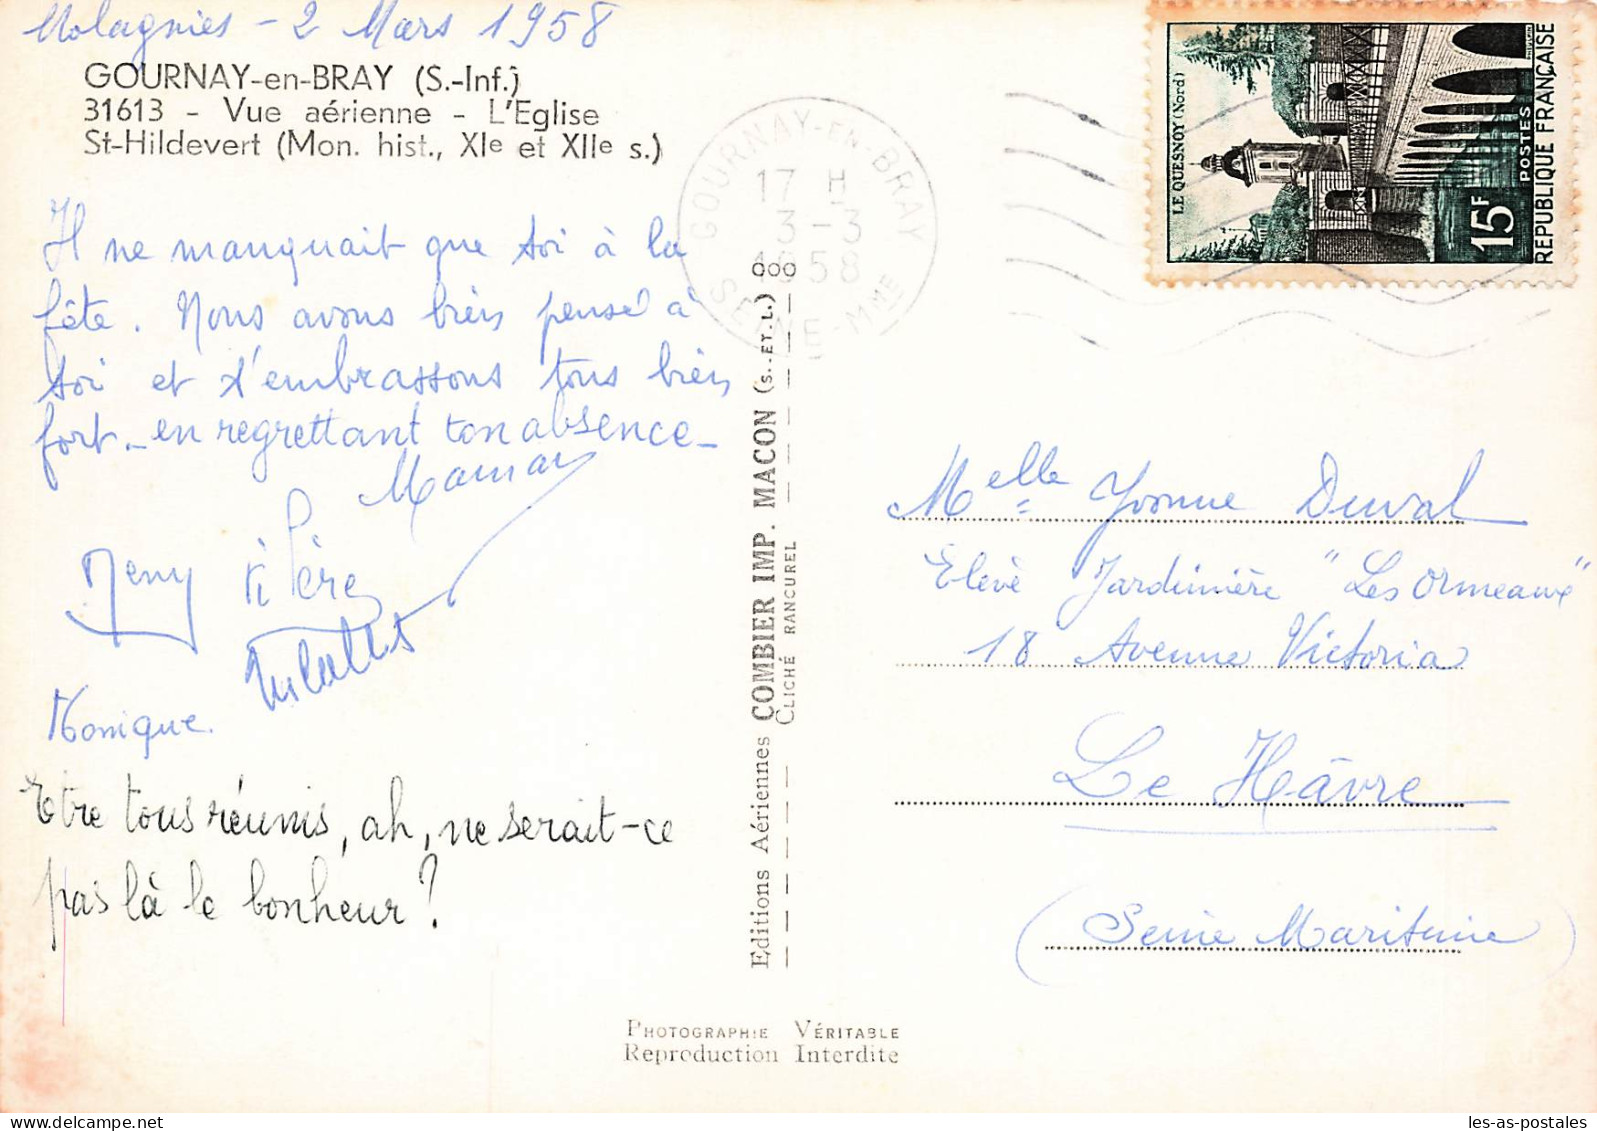 Molagnies - 2 Mars 1958
GOURNAY-en-BRAY (S.-Inf.)
31613 - Vue aérienne - L'Eglise
St-Hildevert (Mon. hist., XIe et XIIe s.)
Il ne manquait que toi à la
fête. Nous avons bien pensé à
toi et t'embrassons tous bien
fort - en regrettant ton absence -
Maman
Père
Monique.
Etre tous réunis, ah, ne serait-ce
pas là le bonheur?
GOURNAY-EN-BRAY
17 H
3-3
1958
SEINE-Mme
LE QUESNOY (Nord)
15F
POSTES
REPUBLIQUE FRANÇAISE
Editions Aériennes COMBIER IMP. MACON (S.-ET-L.)
CLICHÉ RANCUREL
Melle Yvonne Duval
Elève Jardinière "Les Ormeaux"
18 Avenue Victoria
Le Hâvre
(Seine Maritime)
PHOTOGRAPHIE VÉRITABLE
Reproduction Interdite
les-as-postales